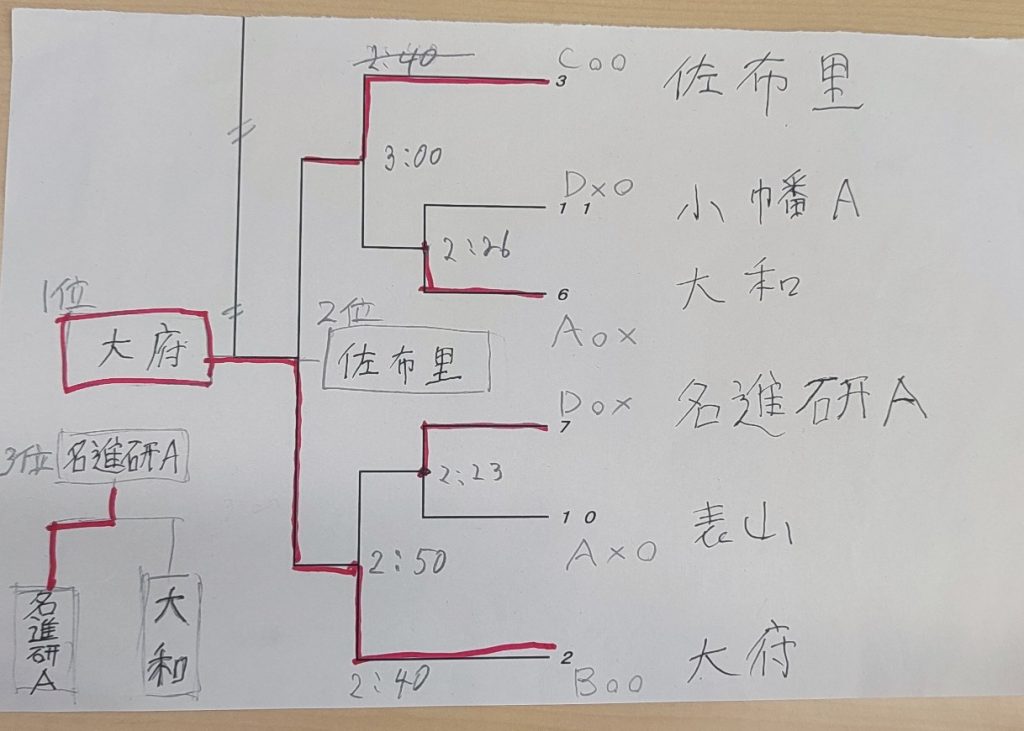 2:40
C○○
3
佐布里
3:00
D×○
11
小幡A
2:26
6
大和
A○×
1位
大府
2位
佐布里
D○×
7
名進研A
2:23
3位
名進研A
10
表山
A×○
2:50
名進研A
大和
2
大府
2:40
B○○